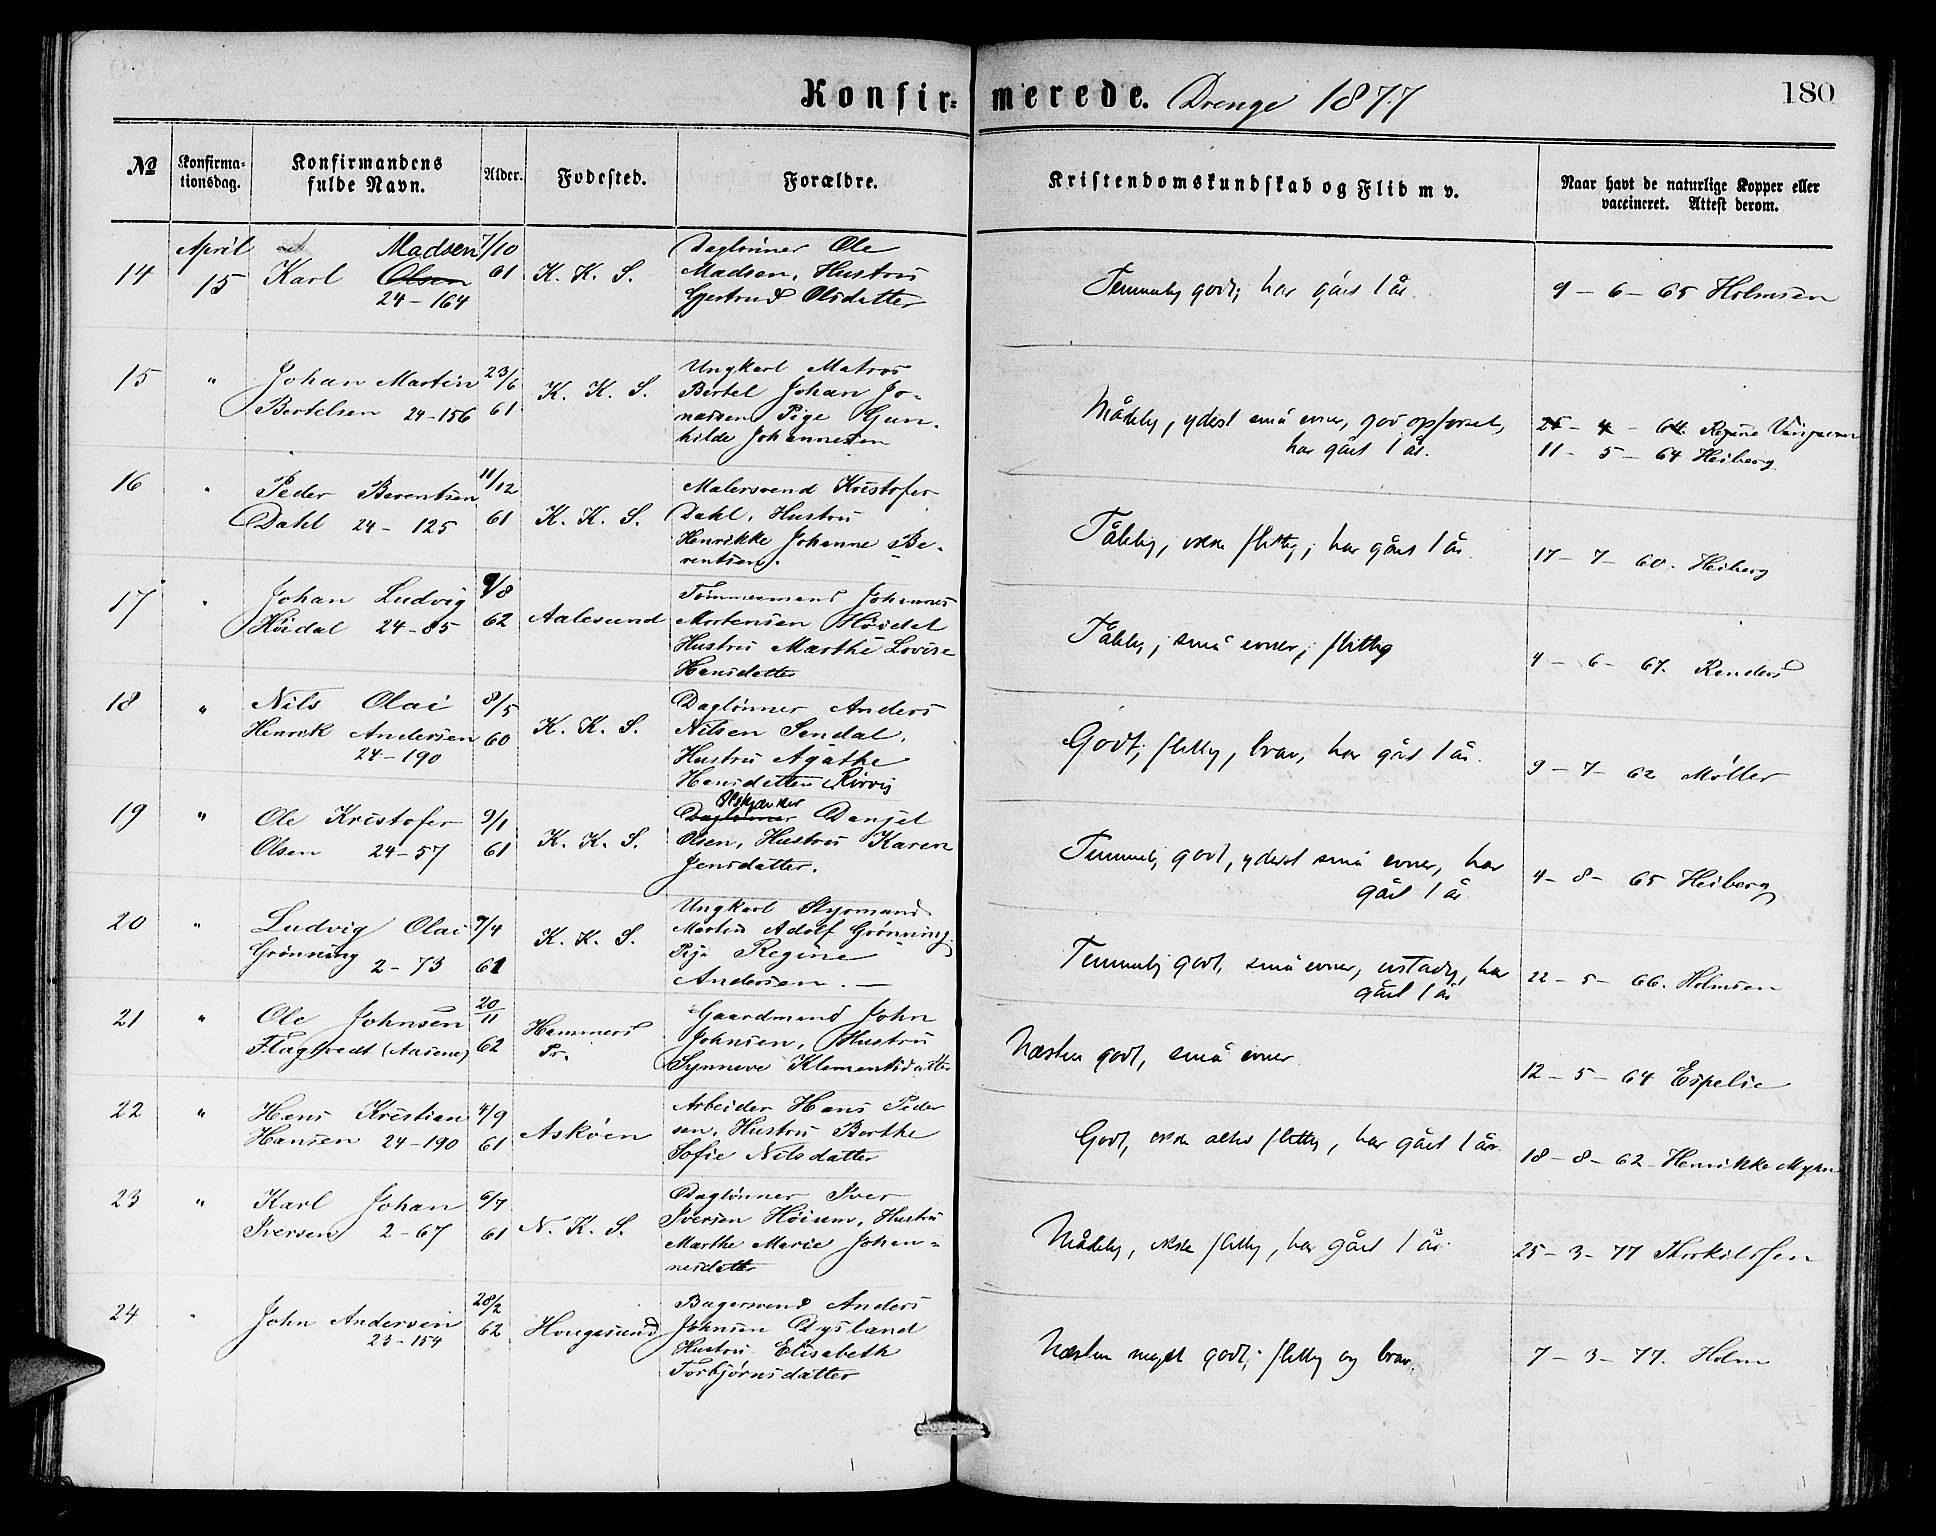 Konfir- merede. Drenge 1877
180
№ Konfirma-tionsdag. Konfirmandens fulde Navn. Alder. Fodested. Forældre. Kristendomskundskab og Flid m v. Naar havt de naturlige Kopper eller vaccineret. Attest derom.
April Madsen 7/10 Daglønner Ole
14 15 Karl Olsen 61 K. K. S. Madsen, Hustru
24-164 Gjertrud Olsdatter
Temmelig godt; har gået 1 år. 9 - 6 - 65 Holmsen
15 " Johan Martin 23/6 K. K. S. Ungkarl Matros
Bertelsen 24-156 61 Bertel Johan Jo-
nassen Pige Gun-
hilde Johannesen
Mådelig, yderst små evner, god opførsel, 25 - 4 - 64. Regine
har gået 1 år. 11 - 5 - 64 Heiberg
16 " Peder Berentsen 11/12 Malersvend Kristofer
Dahl 24- 125 61 K. K. S. Dahl, Hustru
Henrikke Johanne Be-
rentsen.
Tålelig, ikke flittig; har gået 1 år. 17 - 7 - 60. Heiberg
17 " Johan Ludvig 9/8 Tømmermand Johannes
Høidal 24-85 62 Aalesund Mortensen Høidal
Hustru Marthe Lovise
Hansdatter
Tålelig; små evner; flittig 4 - 6 - 67. Randers
18 " Nils Olai 8/5 Daglønner Anders
Henrik Andersen 60 K. K. S. Nilsen Sendal,
24-190 Hustru Agathe
Hansdatter Rørvig
Godt; flittig, brav, har gået 1 år. 9 - 7 - 62 Møller
19 " Ole Kristofer 9/1 Daglønner Danjel
Olsen 24-57 61 K. K. S. Olsen, Hustru Karen
Jensdatter.
Temmelig godt, yderst små evner, har 4 - 8 - 65 Heiberg
gået 1 år
20 " Ludvig Olai 7/4 K. K. S. Ungkarl Styrmand
Grønning 2-73 61 Martin Adolf Grønning,
Pige Regine
Andersen. —
Temmelig godt, små evner, ustadig, har 22 - 5 - 66. Holmsen
gået 1 år
21 " Ole Johnsen 20/11 Hammers Gaardmand John
Flagtvedt (Aasene) 62 Pr. Johnsen, Hustru
Synneve Klementsdatter
Næsten godt, små evner 12 - 5 - 64 Espelie
22 " Hans Kristian 4/9 Arbeider Hans Peder
Hansen 24-190 61 Askøen sen, Hustru Berthe
Sofie Nilsdatter
Godt, ikke altid flittig, har gået 1 år. 18 - 8 - 62 Henrikke Myhre
23 " Karl Johan 6/7 Daglønner Iver
Iversen 2-67 61 N. K. S. Iversen Høisen, Hustru
Marthe Marie Johan-
nesdatter
Mådelig, ikke flittig, har gået 1 år. 25 - 3 - 77 Thorkildsen
24 " John Andersen 28/2 Bagersvend Anders
23-154 62 Hougesund Johnsen Dysland
Hustru Elisabeth
Torbjørnsdatter
Næsten meget godt; flittig og brav. 7 - 3 - 77. Holm